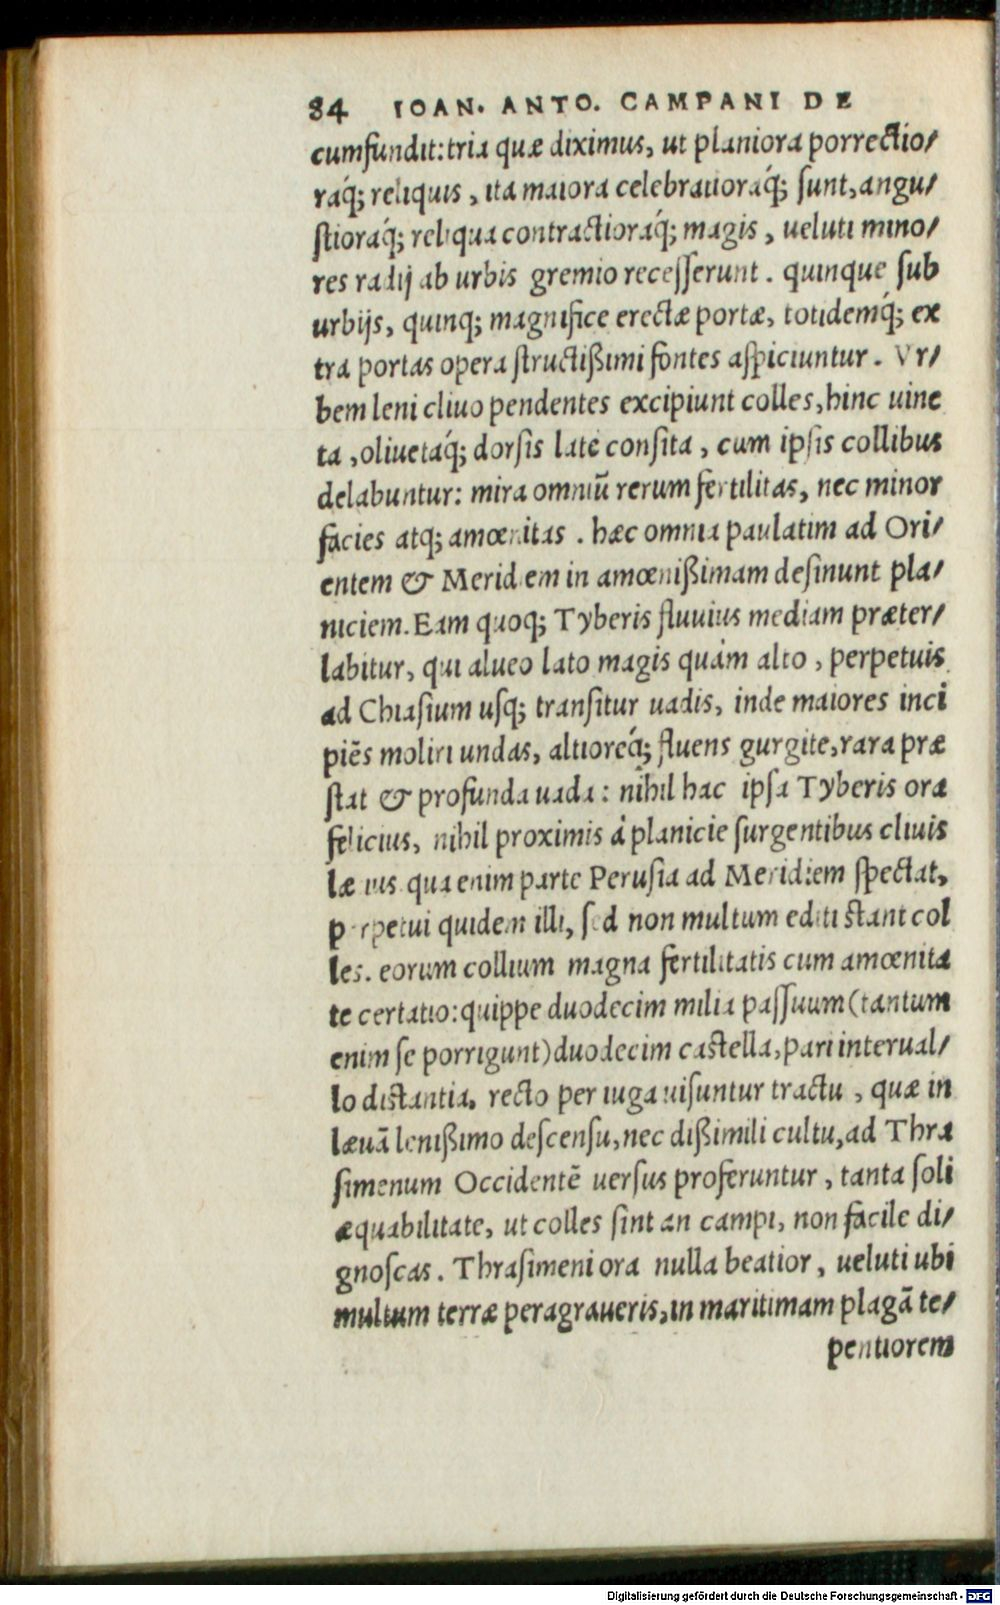 84 IOAN. ANTO. CAMPANI DE
cumfundit: tria quæ diximus, ut planiora porrectio/
raq́; reliquis, ita maiora celebratioraq́; sunt, angu/
stioraq́; reliqua contractioraq́; magis, ueluti mino/
res radij ab urbis gremio recesserunt. quinque sub
urbijs, quinq; magnifice erectæ portæ, totidemq́; ex
tra portas opera structißimi fontes aspiciuntur. Vr/
bem leni cliuo pendentes excipiunt colles, hinc uine
ta, oliuetaq́; dorsis late consita, cum ipsis collibus
delabuntur: mira omniũ rerum fertilitas, nec minor
facies atq; amœnitas. hæc omnia paulatim ad Ori/
entem & Meridiem in amœnißimam desinunt pla/
niciem. Eam quoq; Tyberis fluuius mediam præter/
labitur, qui alueo lato magis quàm alto, perpetuis
ad Chiasium usq; transitur uadis, inde maiores inci
piẽs moliri undas, altioreq́; fluens gurgite, rara præ
stat & profunda uada: nihil hac ipsa Tyberis ora
felicius, nihil proximis à planicie surgentibus cliuis
lætius. qua enim parte Perusia ad Meridiem spectat,
perpetui quidem illi, sed non multum editi stant col
les. eorum collium magna fertilitatis cum amœnita
te certatio: quippe duodecim milia passuum (tantum
enim se porrigunt) duodecim castella, pari interual/
lo distantia, recto per iuga uisuntur tractu, quæ in
læuã lenißimo descensu, nec dißimili cultu, ad Thra
simenum Occidentẽ uersus proferuntur, tanta soli
æquabilitate, ut colles sint an campi, non facile di/
gnoscas. Thrasimeni ora nulla beatior, ueluti ubi
multum terræ peragraueris, in maritimam plagã te/
pentiorem
Digitalisierung gefördert durch die Deutsche Forschungsgemeinschaft - DFG